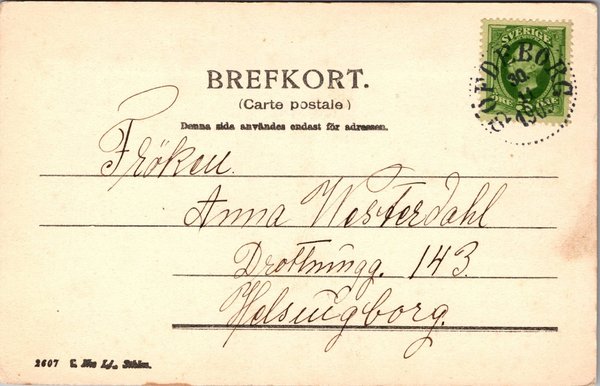 BREFKORT.
(Carte postale)
Denna sida användes endast för adressen.
SVERIGE
30
11
Fröken.
Anna Westerdahl
Drottningg. 143.
Helsingborg.
2607